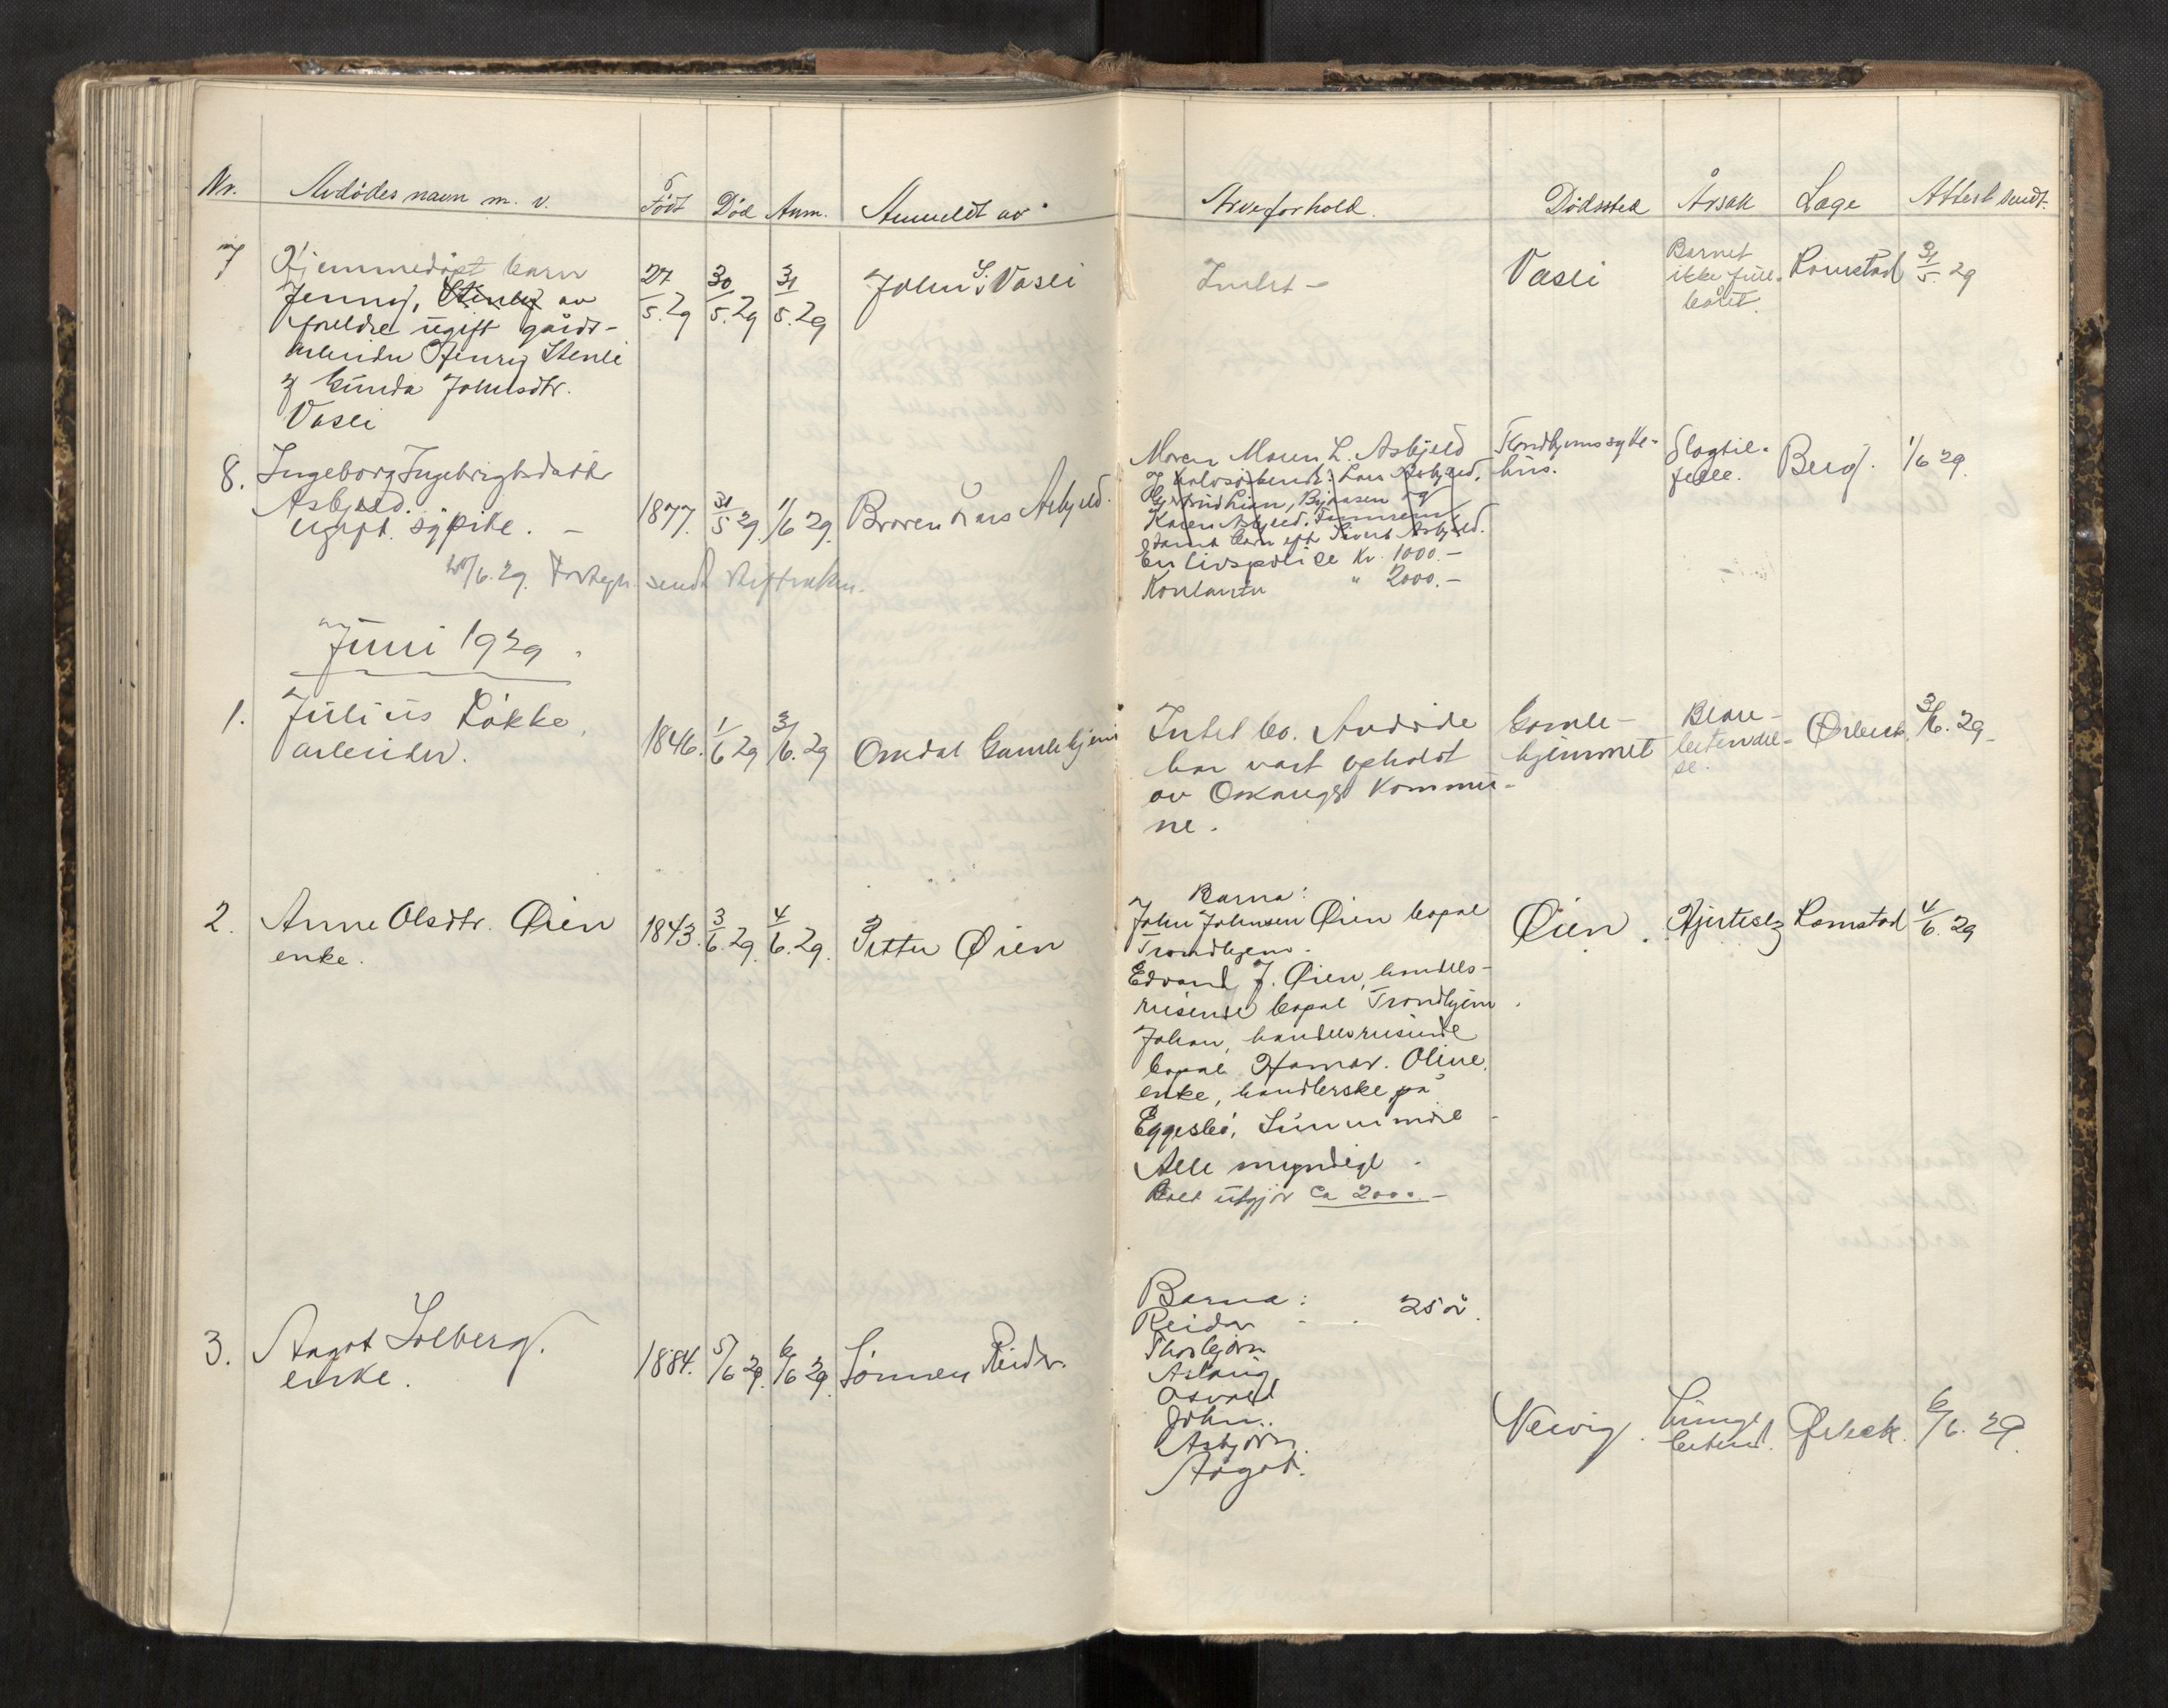 Nr. Avdødes navn m. v. Født Død Anm. Anmeldt av Arveforhold. Dødssted Årsak Læge Attest sendt.
7 Hjemmedøpt barn
Jenny, av
foreldre ugift gårds-
arbeider Henry Stenli
& Gunda Johnsdtr.
Vasli
27/5.29 30/5.29 31/5.29 John S. Vasli
Intet - Vasli
Barnet
ikke full-
båret.
Romstad 31/5 29
8. Ingeborg Ingebrigtsdatter
Asbjeld.
ugift sypike. -
1877. 31/5 29. 1/6 29. Broren Lars Asbjeld.
Moren Maren L. Asbjeld
og halvsøskende: Lars Asbjeld,
Gjertrud Lian, og
Karen Asbjeld,
samt barn eft. Sivert Asbjeld.
En livspolise Kr. 1000.-
Kontanter " 2000.-
Trondhjems syke-
hus.
Slagtil-
felle.
Berg. 1/6 29.
/6. 29. sendt skifteretten.
Juni 1929.
1. Julius Løkke,
arbeider.
1846. 1/6 29 3/6. 29 Orkdal Gamlehjem
Intet bo. Avdøde
har vært opholdt
av Orkanger Kommu-
ne.
Gamle-
hjemmet
Blære-
betendel-
se.
Ørbeck. 3/6. 29-
2. Anne Olsdtr. Øien
enke.
1843. 3/6. 29. 4/6. 29. Petter Øien
Barna:
John Johnsen Øien bopæl
Trondhjem.
Edvard J. Øien, handels-
reisende bopæl Trondhjem.
Johan, handelsreisende
bopæl Hamar. Oline,
enke, handlerske på
Eggesbø, Sunnmøre
Alle myndige.
Boet utgjør ca 2000-
Øien. Hjerteslg Romstad 4/6. 29
3. Aagot Solberg.
enke.
1884. 5/6 29. 6/6 29. Sønnen Reidar.
Barna:
Reidar - . 25 år.
Thorbjørn
Aslaug
Osvald
John.
Asbjørn.
Aagot.
Nervig. Lunge
betend. Ørbeck. 6/6. 29.